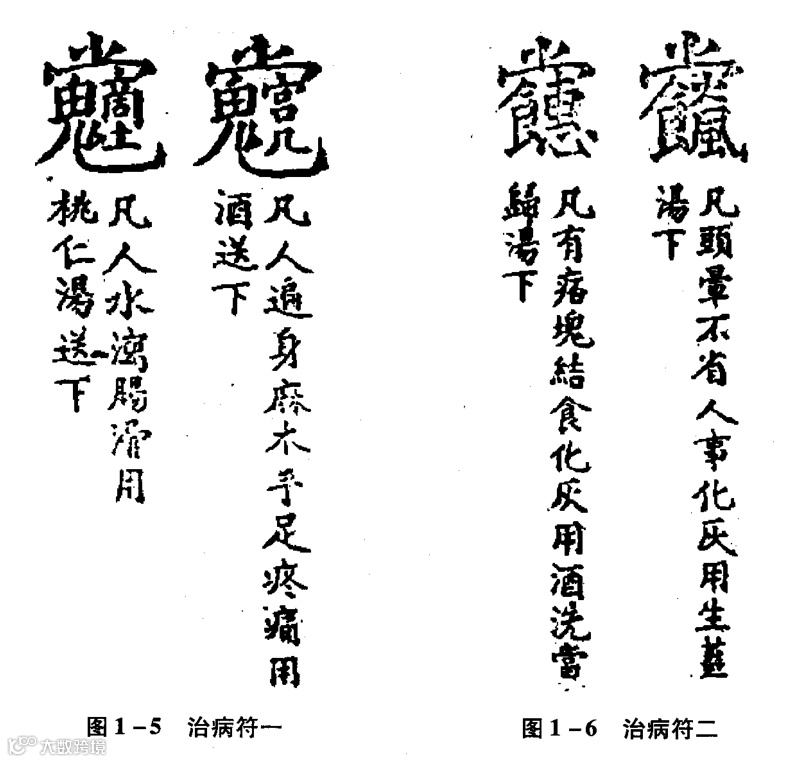 凡頭暈不省人事化灰用生薑
湯下
凡有痞塊結食化灰用酒洗當
歸湯下
凡人遍身麻木手足疼痛用
酒送下
凡人水瀉腸滑用
桃仁湯送下
图1-5 治病符一
图1-6 治病符二
大数跨境